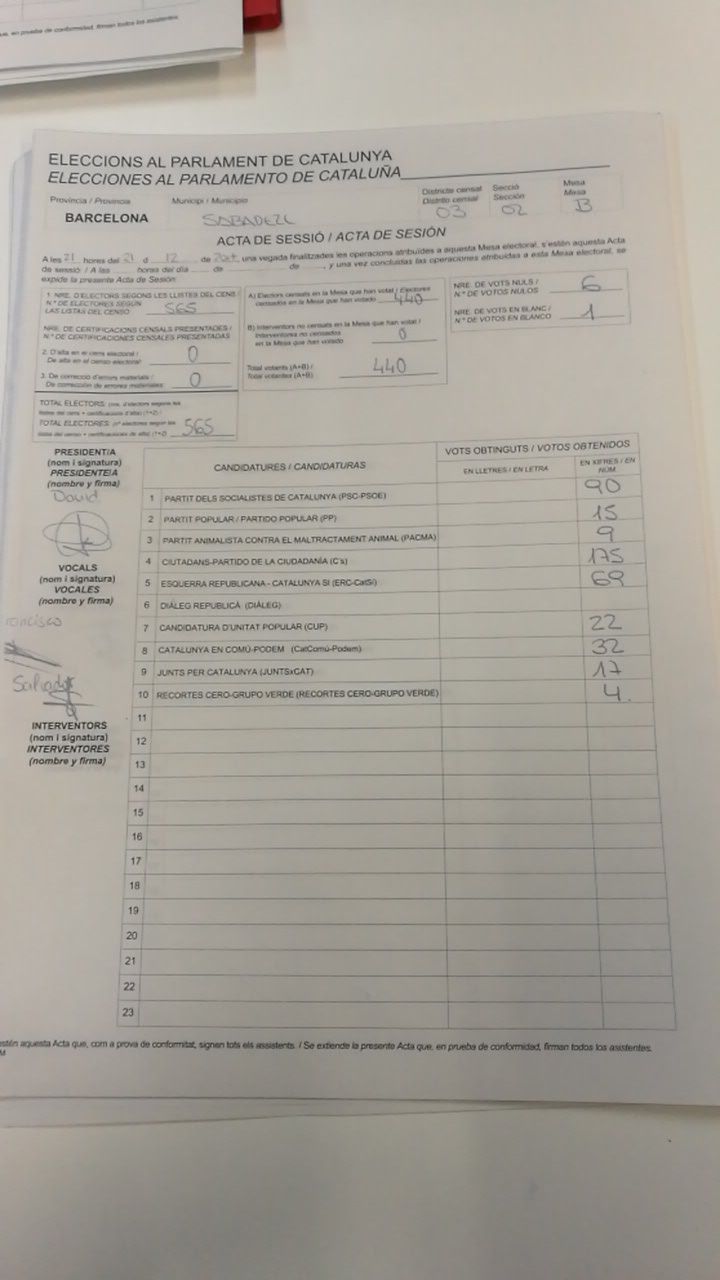 ue, en prueba de conformidad, firman todos los asistentes.
ELECCIONS AL PARLAMENT DE CATALUNYA
ELECCIONES AL PARLAMENTO DE CATALUÑA
Província / Provincia Municipi / Municipio Districte censal Secció Mesa
Distrito censal Sección Mesa
BARCELONA SABADELL 03 02 B
ACTA DE SESSIÓ / ACTA DE SESIÓN
A les 21 hores del 21 d 12 de una vegada finalitzades les operacions atribuïdes a aquesta Mesa electoral, s'estén aquesta Acta
de sessió / A las horas del día de de , y una vez concluidas las operaciones atribuidas a esta Mesa electoral, se
expide la presente Acta de Sesión:
1. NRE. D'ELECTORS SEGONS LES LLISTES DEL CENS
N.º DE ELECTORES SEGÚN
LAS LISTAS DEL CENSO 565
NRE. DE CERTIFICACIONS CENSALS PRESENTADES /
N.º DE CERTIFICACIONES CENSALES PRESENTADAS
2. D'alta en el cens electoral /
De alta en el censo electoral 0
3. De correcció d'errors materials /
De corrección de errores materiales 0
TOTAL ELECTORS: (nre. d'electors segons les
llistes del cens + certificacions d'alta) (1+2) /
TOTAL ELECTORES: (nº electores según las
listas del censo + certificaciones de alta) (1+2) 565
A) Electors censats en la Mesa que han votat / Electores
censados en la Mesa que han votado 440
B) Interventors no censats en la Mesa que han votat /
Interventores no censados
en la Mesa que han votado 0
Total votants (A+B) /
Total votantes (A+B) 440
NRE. DE VOTS NULS /
N.º DE VOTOS NULOS 6
NRE. DE VOTS EN BLANC /
N.º DE VOTOS EN BLANCO 1
PRESIDENT/A
(nom i signatura)
PRESIDENTE/A
(nombre y firma)
David
VOCALS
(nom i signatura)
VOCALES
(nombre y firma)
rancisco
Salvador
INTERVENTORS
(nom i signatura)
INTERVENTORES
(nombre y firma)
CANDIDATURES / CANDIDATURAS VOTS OBTINGUTS / VOTOS OBTENIDOS
EN LLETRES / EN LETRA EN XIFRES / EN NÚM.
1 PARTIT DELS SOCIALISTES DE CATALUNYA (PSC-PSOE) 90
2 PARTIT POPULAR / PARTIDO POPULAR (PP) 15
3 PARTIT ANIMALISTA CONTRA EL MALTRACTAMENT ANIMAL (PACMA) 9
4 CIUTADANS-PARTIDO DE LA CIUDADANÍA (C's) 175
5 ESQUERRA REPUBLICANA - CATALUNYA SÍ (ERC-CatSí) 69
6 DIÀLEG REPUBLICÀ (DIÀLEG)
7 CANDIDATURA D'UNITAT POPULAR (CUP) 22
8 CATALUNYA EN COMÚ-PODEM (CatComú-Podem) 32
9 JUNTS PER CATALUNYA (JUNTSxCAT) 17
10 RECORTES CERO-GRUPO VERDE (RECORTES CERO-GRUPO VERDE) 4.
11
12
13
14
15
16
17
18
19
20
21
22
23
stén aquesta Acta que, com a prova de conformitat, signen tots els assistents. / Se extiende la presente Acta que, en prueba de conformidad, firman todos los asistentes.
M